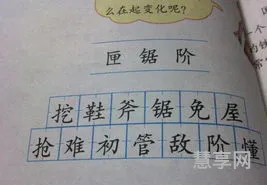 么在起变化呢?
匣 锯 阶
挖鞋斧锯免屋
抢难初管敌阶懂
慧享网